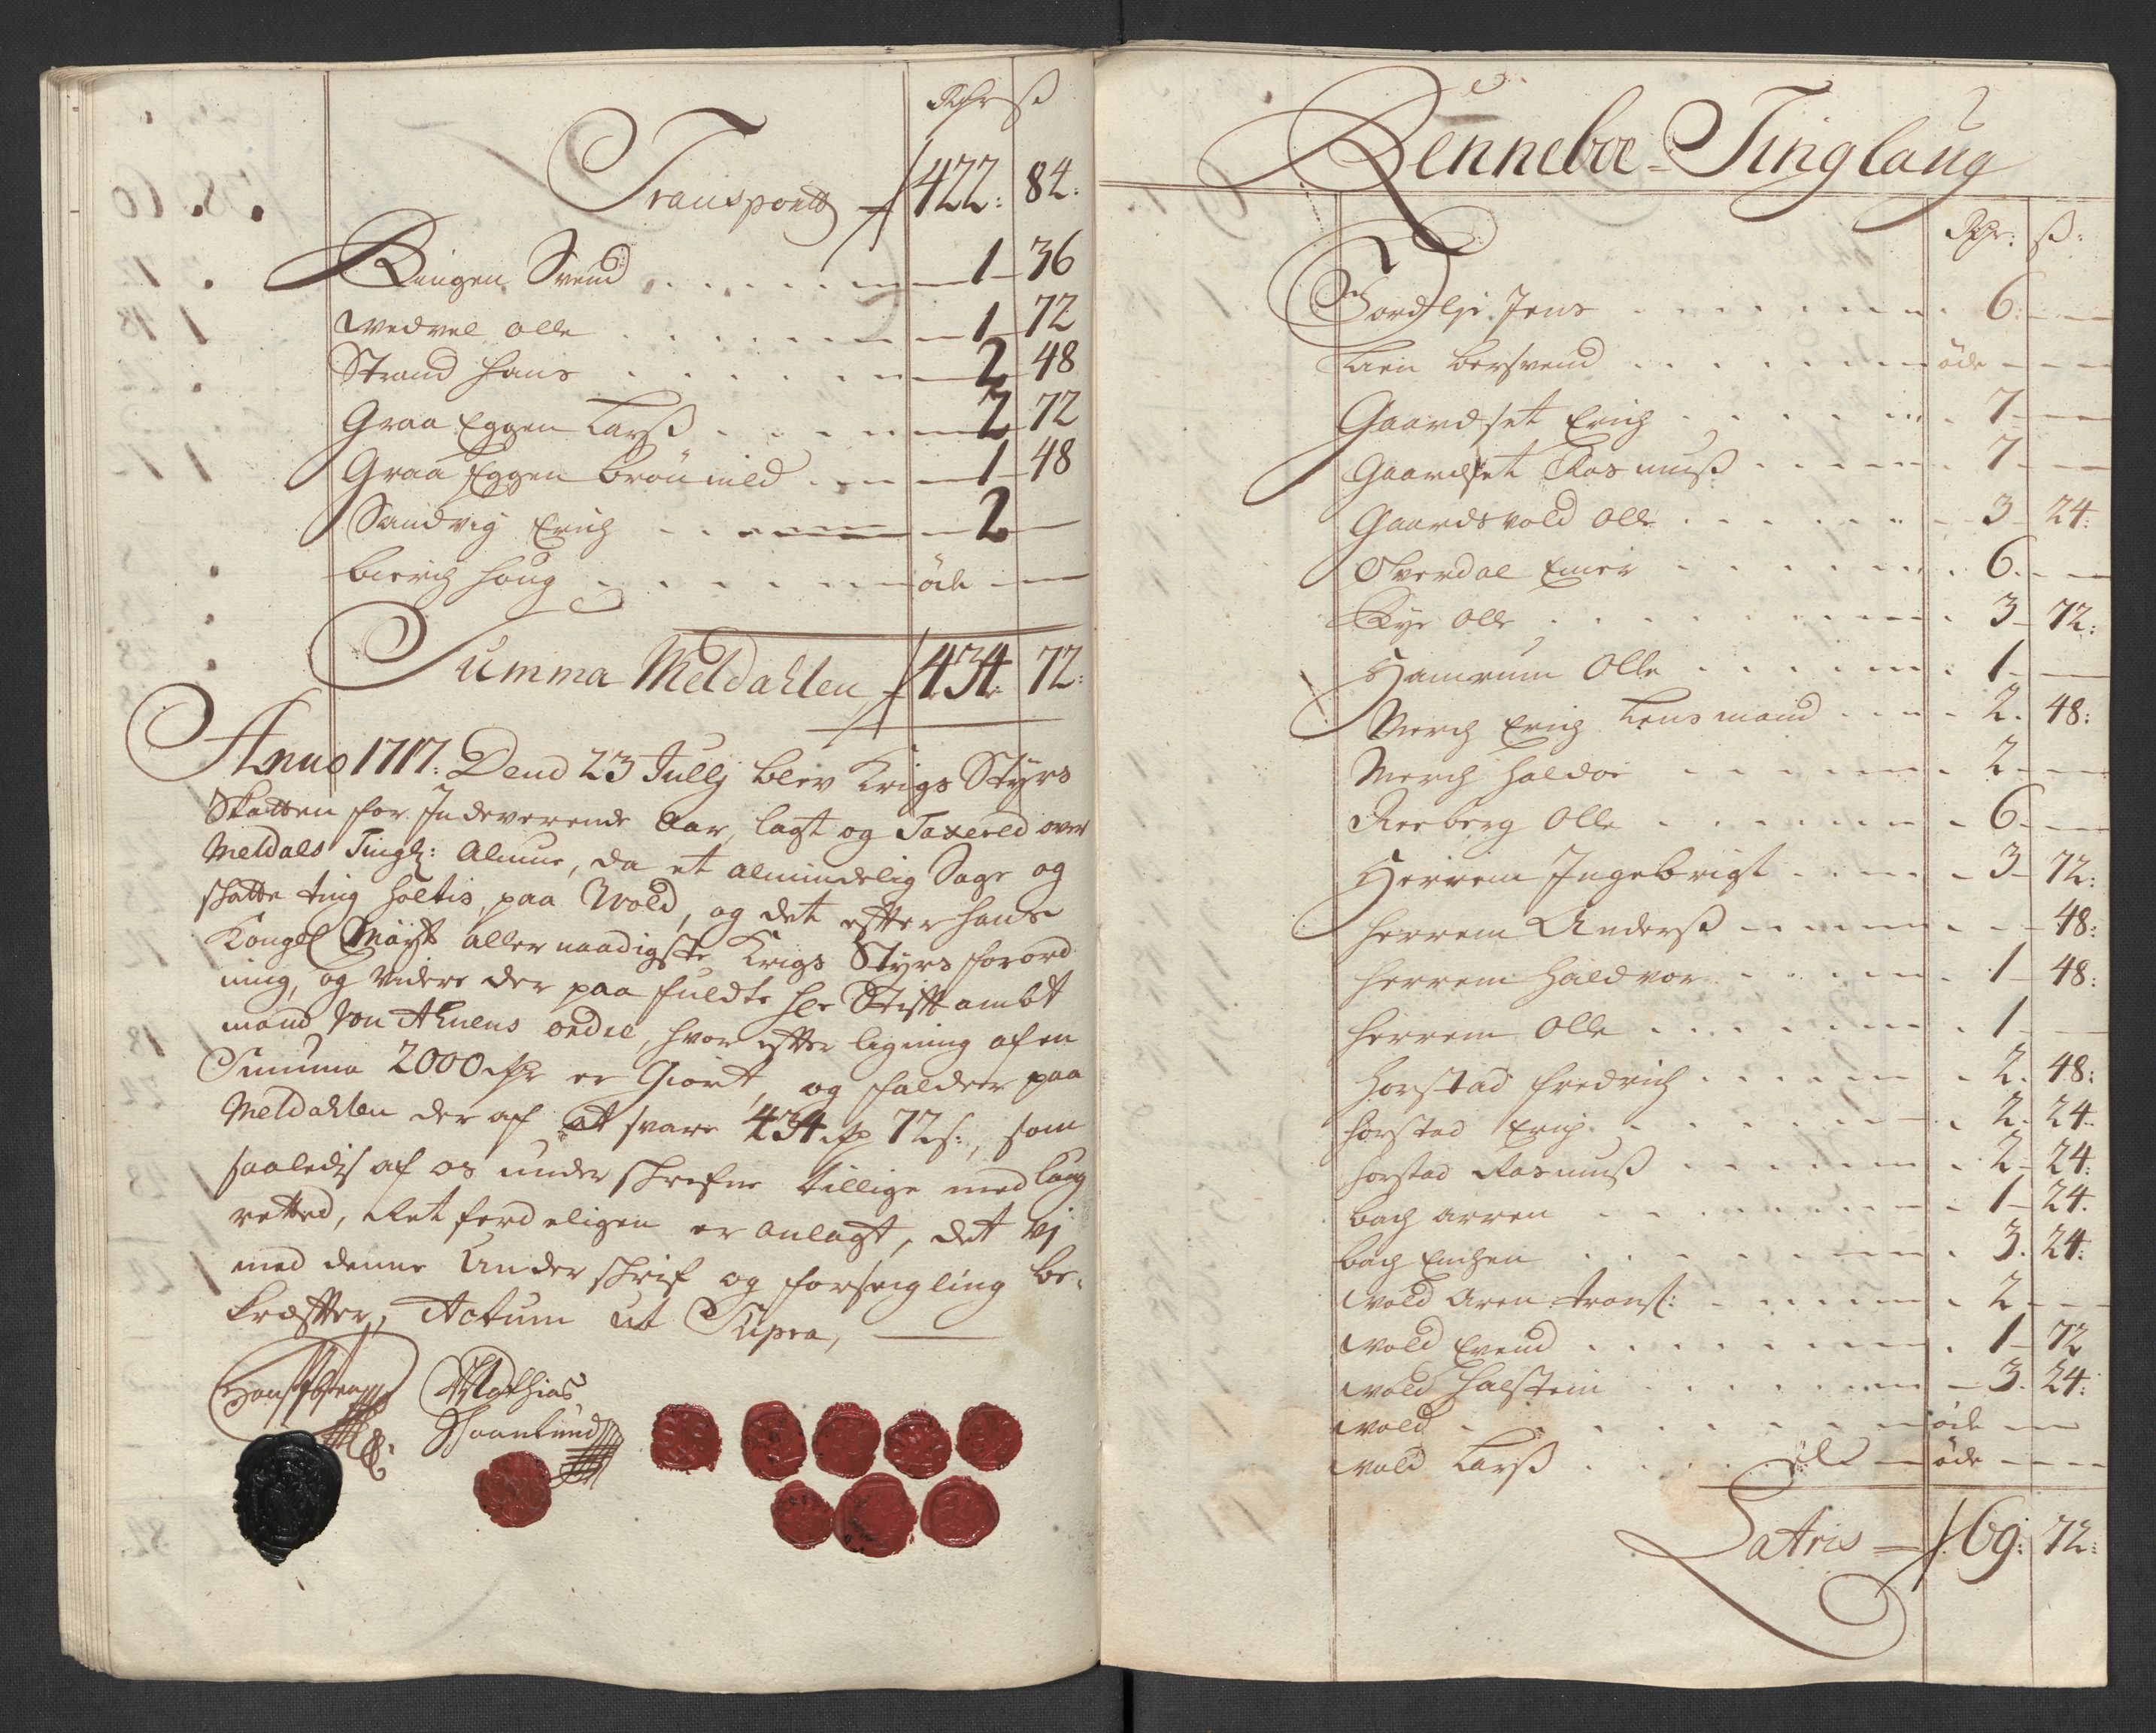 Rdr ß
Transportt 422: 84:
Ringen Svend 1 36
Wedvel Olle 1 72
Strand Hans 2 48
Graa Eggen Larß 2 72
Graa Eggen Brönnild 1 48
Sandvig Erich 2
Bierch Houg öde
Summa Meldahlen 434: 72:
Anno 1717: Dend 23 Jullj blev Krigs Styrs
Skatten for Indeverende Aar, lagt og Taxered over
Meldals Tingl: Almue, da et almindelig Sage og
skatte ting holtis, paa Wold, og det efter hans
Kongel Mayst allernaadigste Krigs Styrs forord
ning, og videre der paa fuldte Hr Stiftambt
mand Von Ahnens ordre, hvor efter ligning af en
Summa 2000 Rdr er Giort, og falder paa
Meldahlen der af at svare 434 Rdr 72 s:, som
saaledis af os under skrefne tillige med laug
retted, Ret ferdeligen er anlagt, det vj
med denne Under skrift og forseigling be-
kræfter, Actum ut Supra,
Mathias
Renneboe-Tinglaug
Rdr: ß:
Gordlj Jens 6
Lien Bersvend öde
Gaardset Erich 7
Gaardset Rasmuß 7
Gaardsvold Olle 3 24:
Olverdal Einer 6
Rye Olle 3 72:
Hamrum Olle 1
Merch Erich Lensmand 2 48:
Merch Haldor 2
Reeberg Olle 6
Herrem Ingebrigt 3 72:
Herrem Anderß 48:
Herrem Haldvor 1 48:
Herrem Olle 1
Horstad Fredrich 2 48:
Horstad Erich 2 24
Horstad Rasmuß 2 24:
Bach Arren 1 24
Bach Enchen 3 24:
Wold Aren 2
Wold Svend 1 72
Wold Halstein 3 24:
Wold öde
Wold Larß öde
Lateris 69: 72: